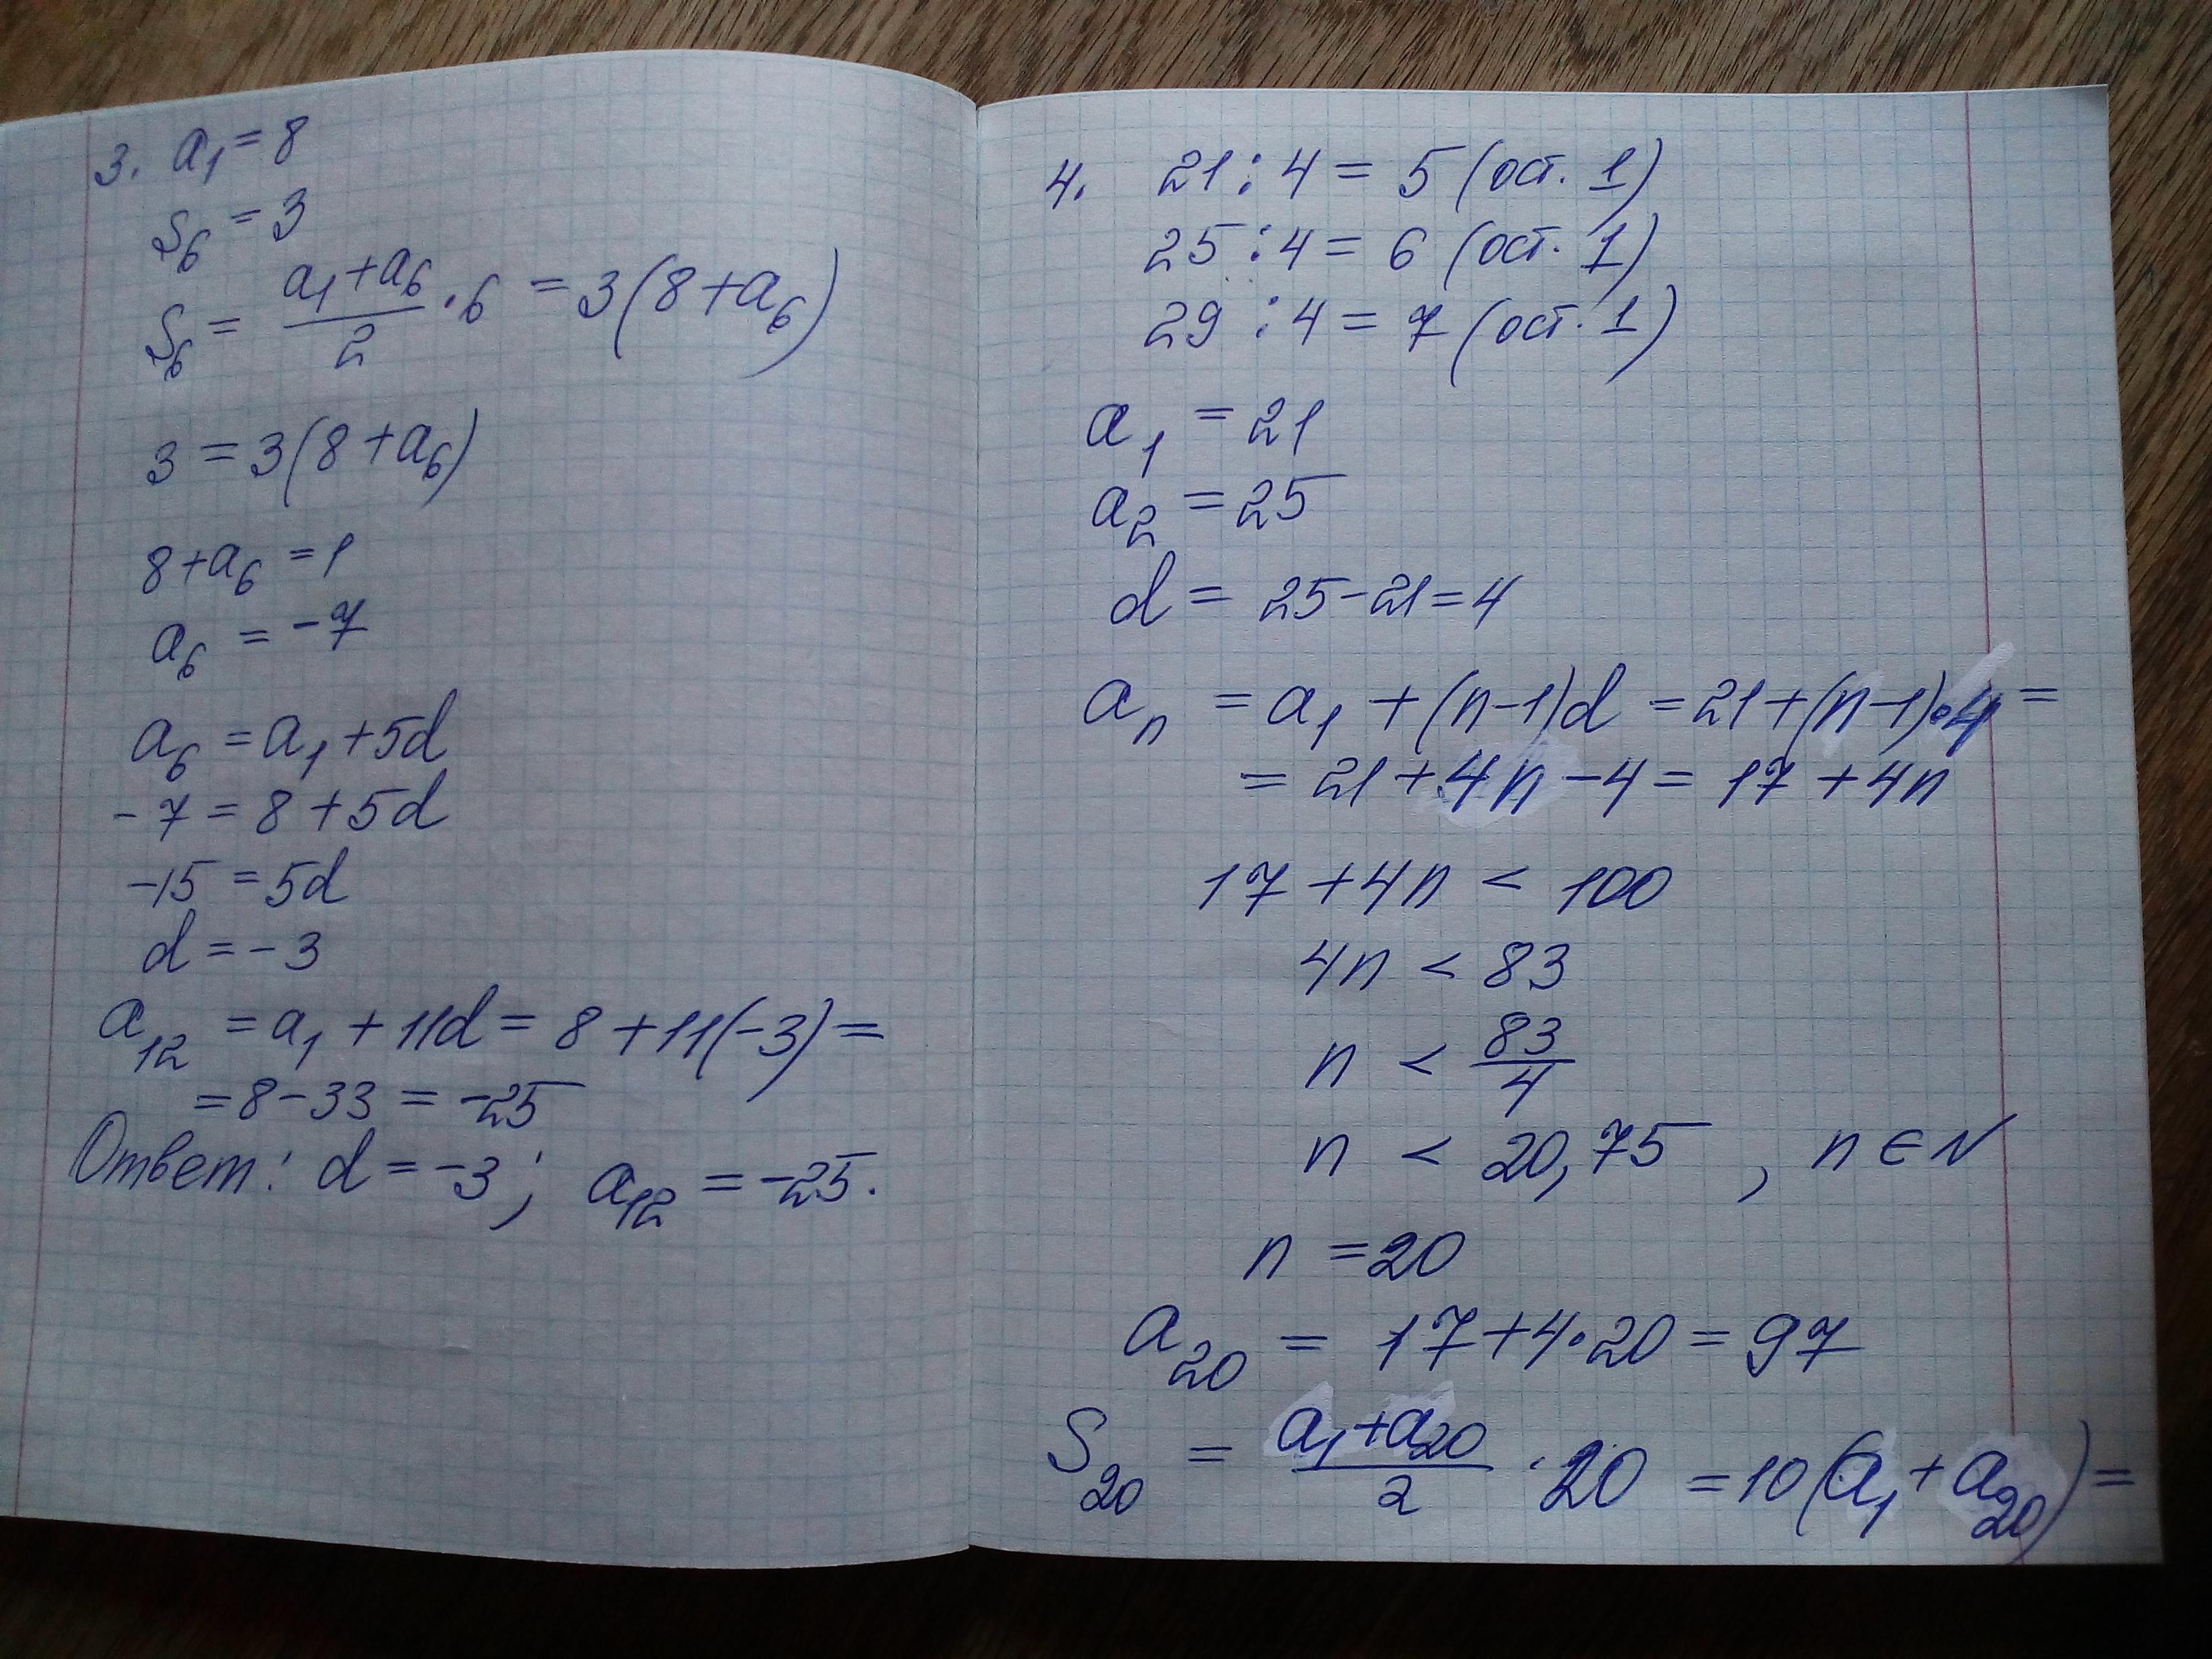 3. a₁ = 8
S₆ = 3
S₆ = (a₁ + a₆)/2 · 6 = 3(8 + a₆)
3 = 3(8 + a₆)
8 + a₆ = 1
a₆ = -7
a₆ = a₁ + 5d
-7 = 8 + 5d
-15 = 5d
d = -3
a₁₂ = a₁ + 11d = 8 + 11(-3) =
= 8 - 33 = -25
Ответ: d = -3; a₁₂ = -25.
4. 21 : 4 = 5 (ост. 1)
25 : 4 = 6 (ост. 1)
29 : 4 = 7 (ост. 1)
a₁ = 21
a₂ = 25
d = 25 - 21 = 4
aₙ = a₁ + (n-1)d = 21 + (n-1)·4 =
= 21 + 4n - 4 = 17 + 4n
17 + 4n < 100
4n < 83
n < 83/4
n < 20,75 , n ∈ N
n = 20
a₂₀ = 17 + 4·20 = 97
S₂₀ = (a₁ + a₂₀)/2 · 20 = 10(a₁ + a₂₀) =